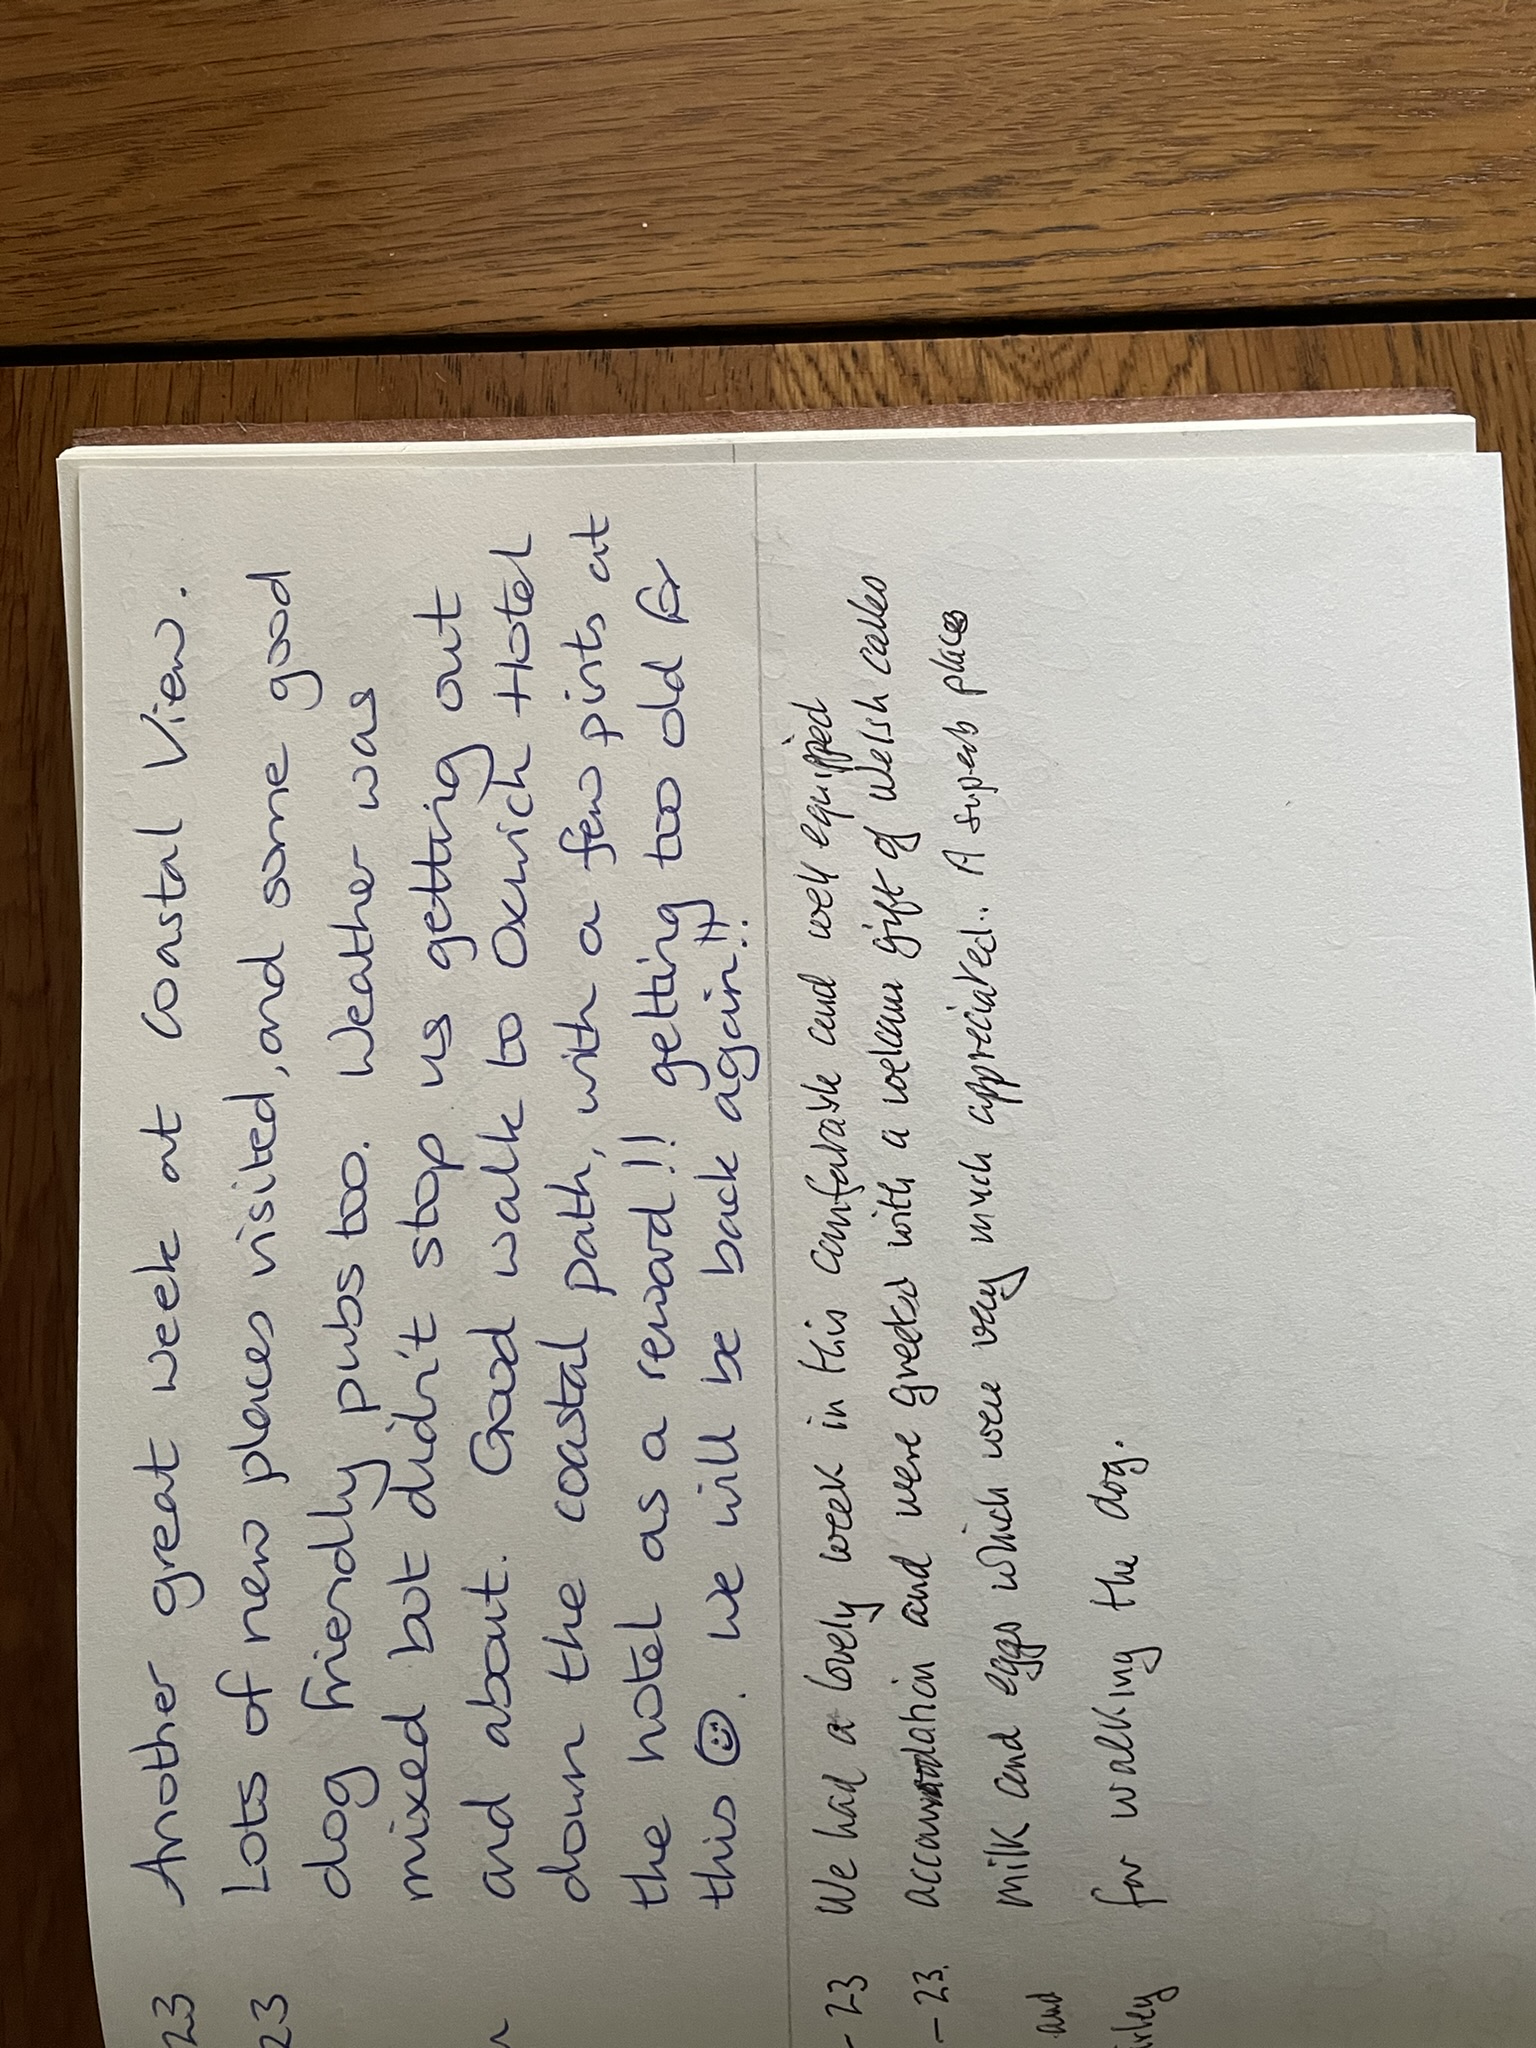 23 Another great week at Coastal View.
23 Lots of new places visited, and some good
dog friendly pubs too. Weather was
mixed but didn't stop us getting out
and about. Good walk to Oxwich Hotel
down the coastal path, with a few pints at
the hotel as a reward!! getting too old for
this ☺. we will be back again!!
- 23 We had a lovely week in this comfortable and well equipped
- 23. accommodation and were greeted with a welcome gift of Welsh cakes
and milk and eggs which were very much appreciated.. A superb places
for walking the dog.